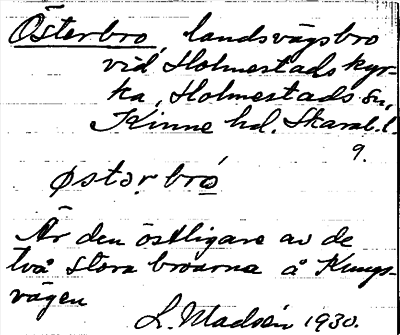 Österbro, landsvägsbro
vid Holmestads kyr-
ka, Holmestads sn,
Kinne hd. Skarab. l.
9.
østərbró
Är den östligare av de
två stora broarna å Kungs-
vägen
L. Madsén 1930.